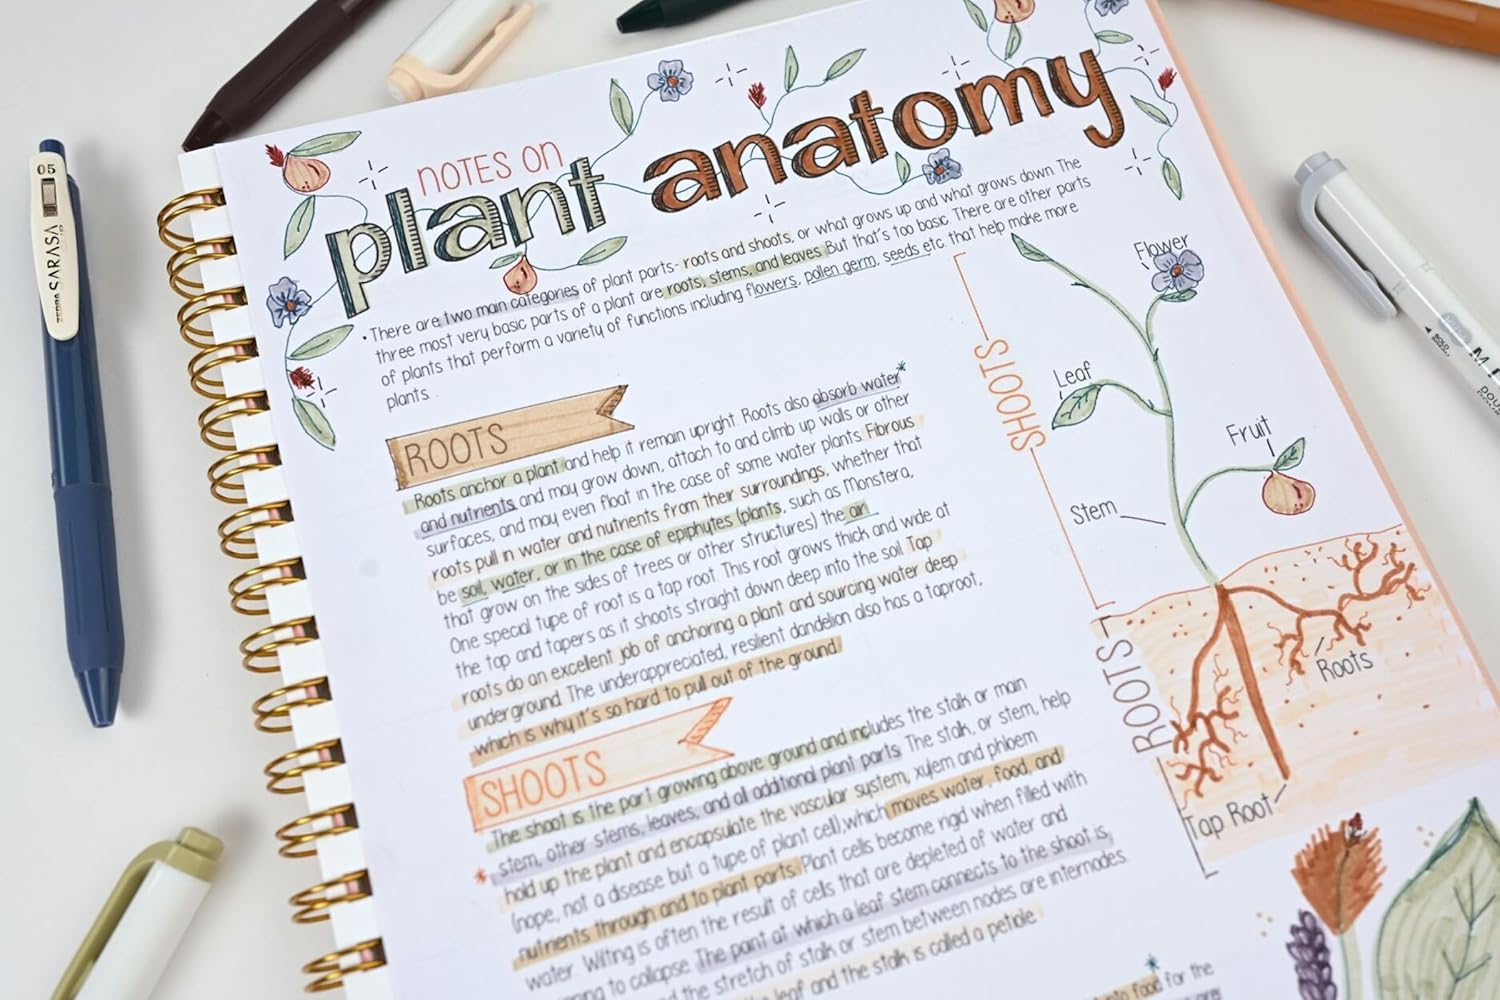 NOTES ON
plant anatomy
• There are two main categories of plant parts- roots and shoots, or what grows up and what grows down. The
three most very basic parts of a plant are roots, stems, and leaves. But that's too basic. There are other parts
of plants that perform a variety of functions including flowers, pollen germ, seeds etc. that help make more
plants.
ROOTS
Roots anchor a plant and help it remain upright. Roots also absorb water*
and nutrients and may grow down, attach to and climb up walls or other
surfaces, and may even float in the case of some water plants. Fibrous
roots pull in water and nutrients from their surroundings, whether that
be soil, water, or in the case of epiphytes (plants, such as Monstera,
that grow on the sides of trees or other structures) the air.
One special type of root is a tap root. This root grows thick and wide at
the top and tapers as it shoots straight down deep into the soil. Tap
roots do an excellent job of anchoring a plant and sourcing water deep
underground. The underappreciated, resilient dandelion also has a taproot,
which is why it's so hard to pull out of the ground!
SHOOTS
The shoot is the part growing above ground and includes the stalk or main
stem, other stems, leaves, and all additional plant parts. The stalk, or stem, help
* hold up the plant and encapsulate the vascular system, xylem and phlbem
(nope, not a disease but a type of plant cell), which moves water, food, and
nutrients through and to plant parts. Plant cells become rigid when filled with
water. Wilting is often the result of cells that are depleted of water and
to collapse. The point at which a leaf stem connects to the shoot is
and the stretch of stalk or stem between nodes are internodes.
leaf and the stalk is called a petiole.
food for the
SHOOTS
Flower
Leaf
Fruit
Stem
ROOTS
Roots
Tap Root
05
SARASA
ZEBRA